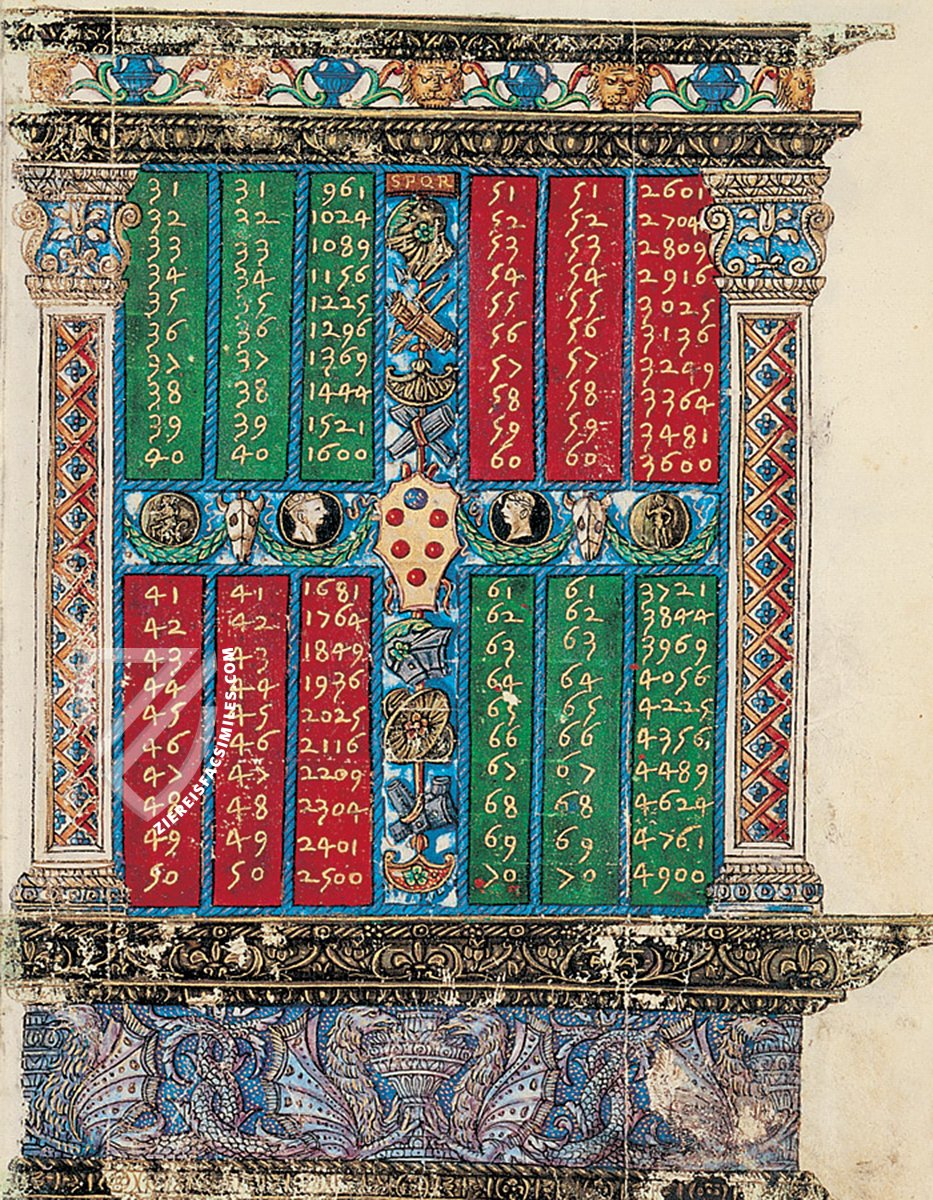 SPQR
31 31 961
32 32 1024
33 33 1089
34 34 1156
35 35 1225
36 36 1296
37 37 1369
38 38 1444
39 39 1521
40 40 1600
51 51 2601
52 52 2704
53 53 2809
54 54 2916
55 55 3025
56 56 3136
57 57 3249
58 58 3364
59 59 3481
60 60 3600
41 41 1681
42 42 1764
43 43 1849
44 44 1936
45 45 2025
46 46 2116
47 47 2209
48 48 2304
49 49 2401
50 50 2500
61 61 3721
62 62 3844
63 63 3969
64 64 4056
65 65 4225
66 66 4356
67 67 4489
68 68 4624
69 69 4761
70 70 4900
ZIEREISFACSIMILES.COM